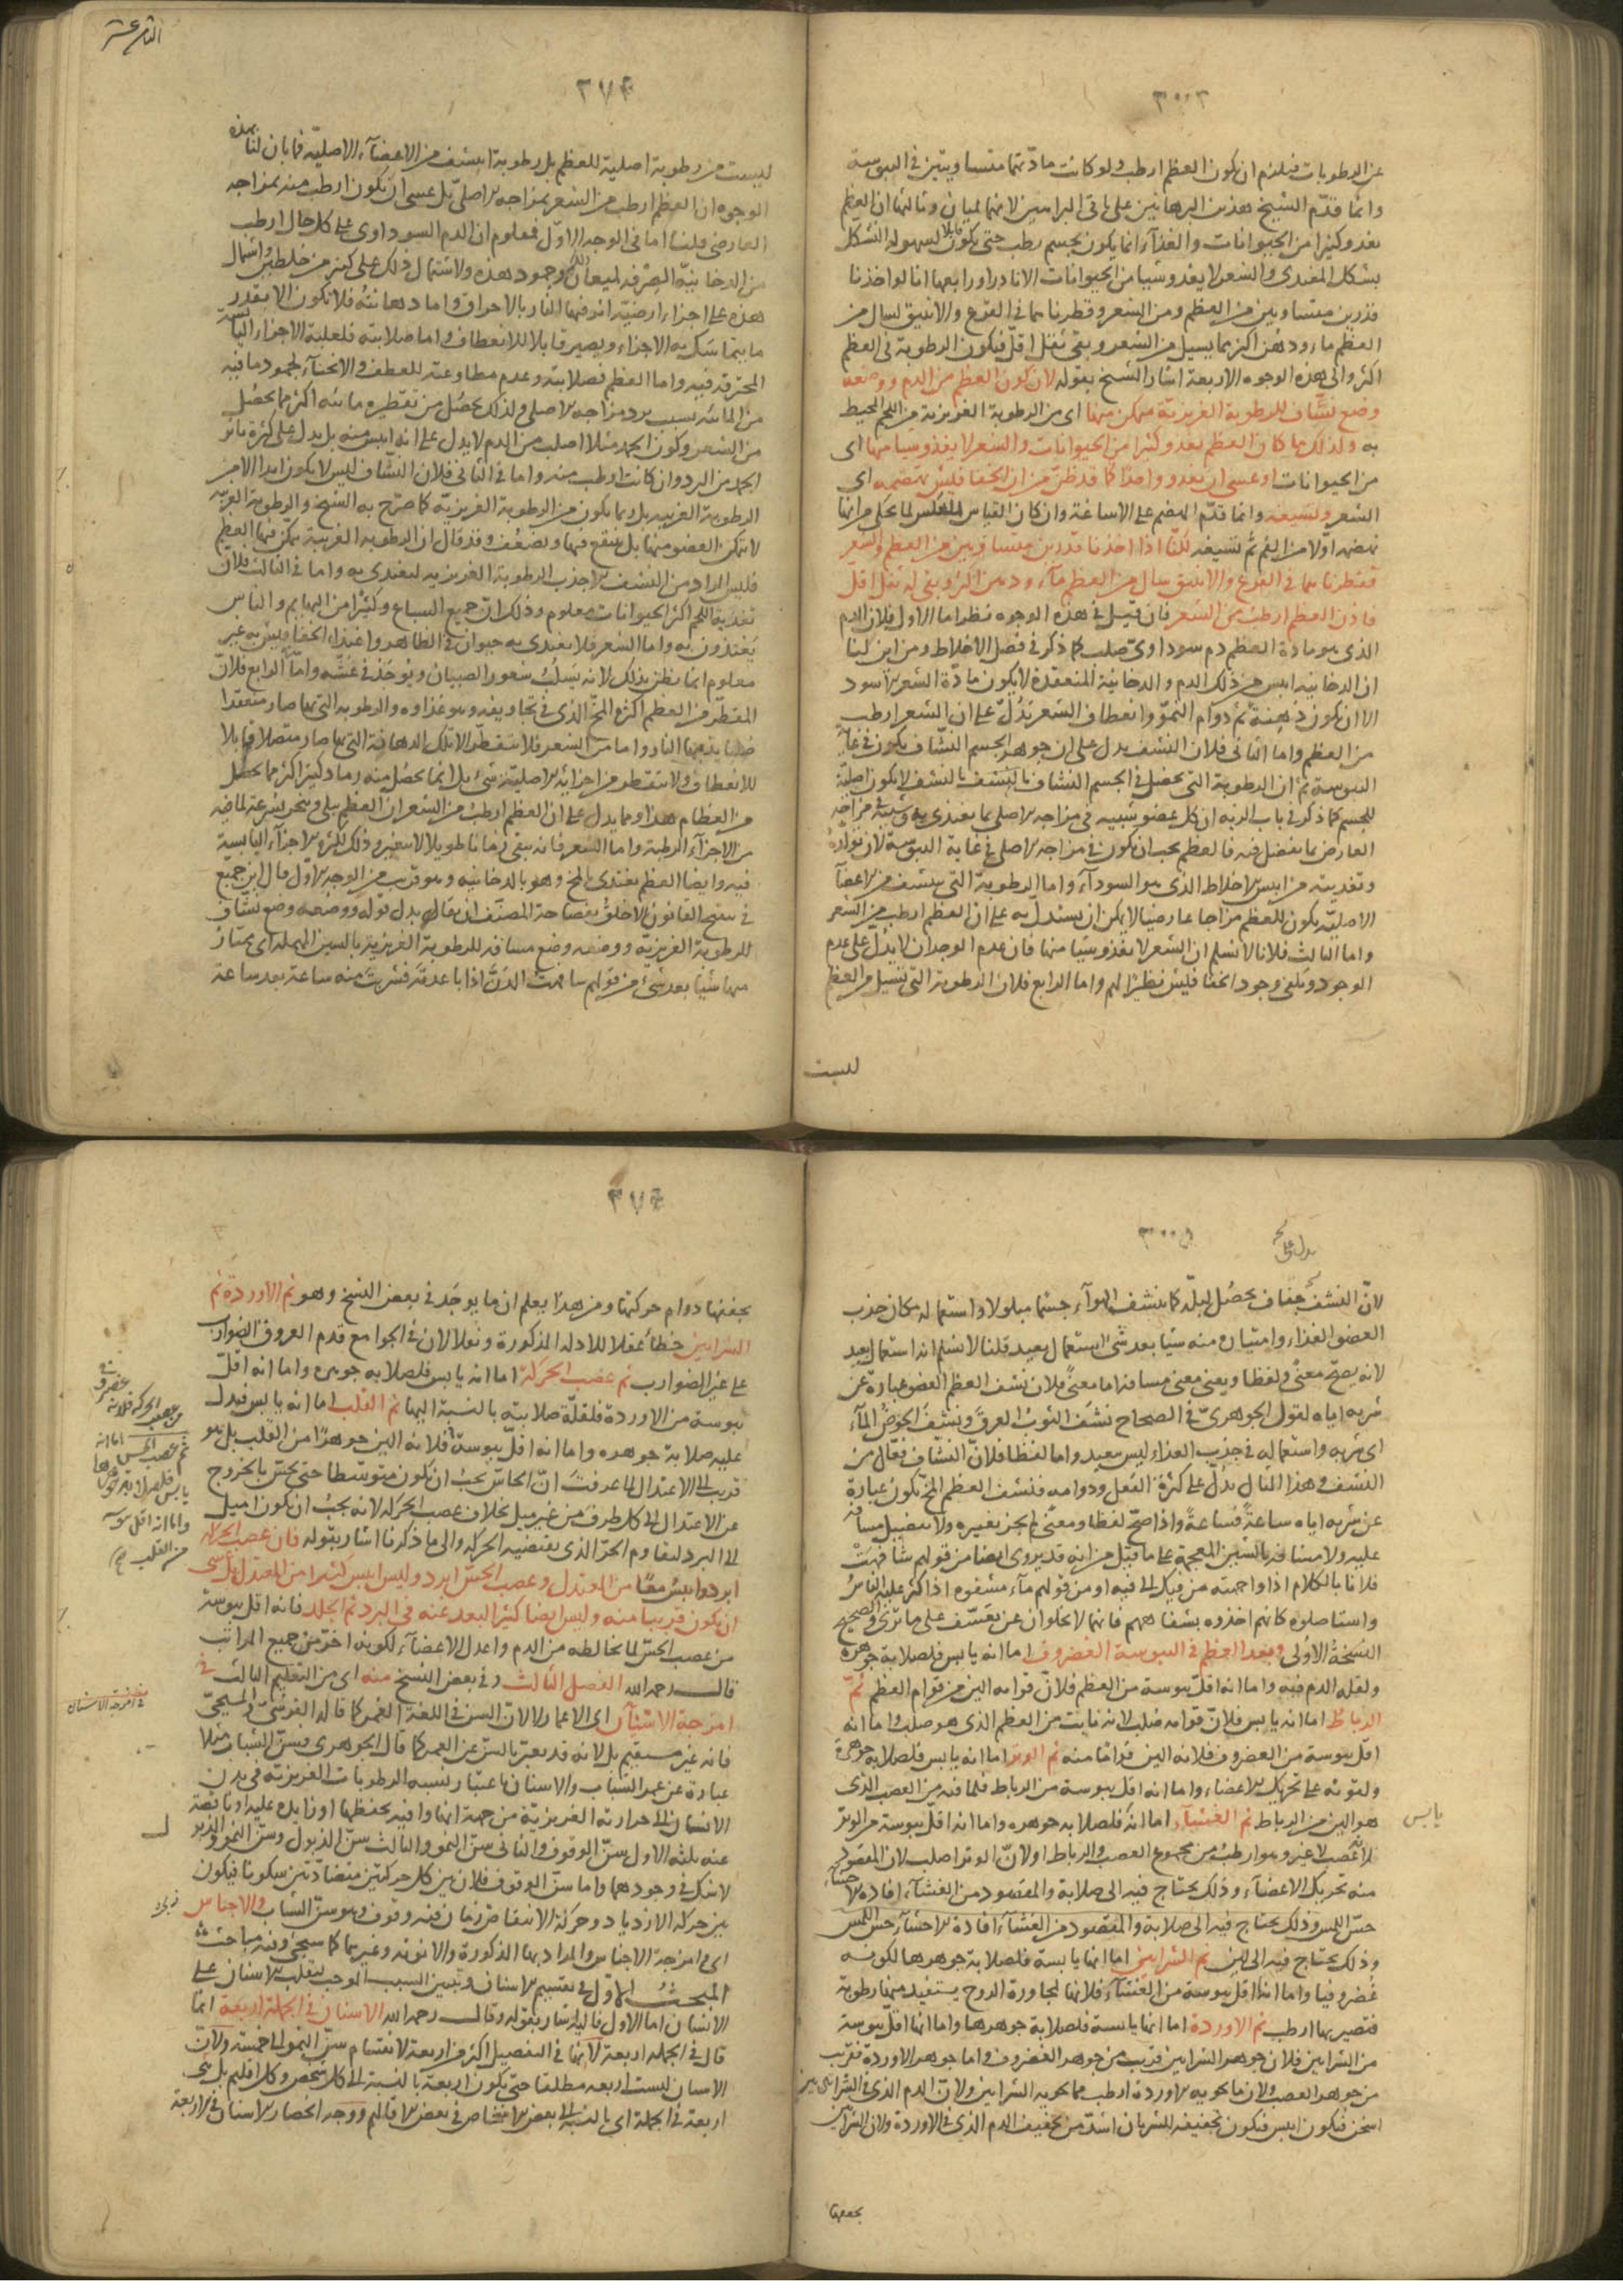 عن الرطوبات فيلزم ان يكون العظم ارطب ولو كانت مادتهما متساويتين في اليبوسة
وانما قدم الشيخ هذين البرهانين على باقي البراهين لانهما لميان وثالثها ان العظم
يغذو كثيرا من الحيوانات والغذاء انما يكون بجسم رطب حتى يكون قابلا لسهولة التشكل
بشكل المغتذى والشعر لا يغذو شيا من الحيوانات الا نادرا ورابعها انا لو اخذنا
قدرين متساويين من العظم ومن الشعر وقطرناهما في القرع والانبيق لسال من
العظم ماء ودهن اكثر مما يسيل من الشعر وبقى ثفل اقل فيكون الرطوبة في العظم
اكثر والى هذه الوجوه الاربعة اشار الشيخ بقوله لان كون العظم من الدم ووضعه
وضع نشاف للرطوبة الغريزية متمكن منها اى من الرطوبة الغريزية من اللحم المحيط
به ولذلك ما كان العظم يغذو كثيرا من الحيوانات والشعر لا يغذو شيا منها اى
من الحيوانات او عسى ان يغذو واحدا كما قد ظن من ان الخفافيش تهضمه اى
الشعر وتسيغه وانما قدم الهضم على الاساغة وان كان القياس العكس لما يحكى من انها
تهضمه اولا من الفم ثم تسيغه لكنا اذا اخذنا قدرين متساويين من العظم والشعر
فقطرناهما في القرع والانبيق سال من العظم ماء ودهن اكثر وبقى له ثفل اقل
فاذن العظم ارطب من الشعر فان قيل في هذه الوجوه نظر اما الاول فلان الدم
الذى هو مادة العظم دم سوداوى صلب كما ذكر في فصل الاخلاط ومن اين لنا
ان الدخانية ايبس من ذلك الدم والدخانية المنعقدة لا يكون مادة الشعر الاسود
الا ان يكون دهينة ثم دوام النمو وانعطاف الشعر يدل على ان الشعر ارطب
من العظم واما الثاني فلان النشف يدل على ان جوهر الجسم النشاف يكون في غاية
اليبوسة ثم ان الرطوبة التى تحصل في الجسم النشاف بالنشف لا يكون اصلية
للجسم كما ذكر في باب الدم ان كل عضو شبيه في مزاجه الاصلى بما يغتذى به وشبيه في مزاجه
العارض بما يفضل فيه فالعظم يجب ان يكون في مزاجه الاصلى في غاية اليبوسة لان تولده
وتغذيته من ايبس الاخلاط الذى هو السوداء واما الرطوبة التى ينشف من الاعضاء
الاصلية يكون للعظم مزاجا عارضيا لا يمكن ان يستدل به على ان العظم ارطب من الشعر
واما الثالث فلانا لا نسلم ان الشعر لا يغذو شيا منها فان عدم الوجدان لا يدل على عدم
الوجود ويكفى وجود الخفافيش نظيرا لهم واما الرابع فلان الرطوبة التى تسيل من العظم
ليست
الثامن عشر
ليست من رطوبة اصلية للعظم بل رطوبة انتشف من الاعضاء الاصلية فما بان لنا بهذه
الوجوه ان العظم ارطب من الشعر بمزاجه الاصلى بل عسى ان يكون ارطب منه بمزاجه
العارضى قلنا اما في الوجه الاول فمعلوم ان الدم السوداوى على كل حال ارطب
من الدخانية الصرفة لميعان ذلك وجمود هذه ولاشتمال ذلك على كثير من خلط واشتمال
هذه على اجزاء ارضية اثر فيها النار بالاحراق واما دهانته فلا يكون الا بقدر
ما يتماسك به الاجزاء ويصير قابلا للانعطاف واما صلابته فلغلبة الاجزاء اليابسة
المحترقة فيه واما العظم فصلابته وعدم مطاوعته للعطف والانحناء لجمود ما فيه
من المائية بسبب برد مزاجه الاصلى ولذلك يحصل من تقطيره مائية اكثر مما يحصل
من الشعر وكون الجمد مثلا اصلب من الدم لا يدل على انه ايبس منه بل يدل على كثرة تاثر
الجمد من البرد وان كانت ارطب منه واما في الثاني فلان النشاف ليس لا يكون ابدا الا من
الرطوبة الغريبة بل ربما يكون من الرطوبة الغريزية كما صرح به الشيخ والرطوبة الغريبة
لا يتمكن العضو منها بل ينتفع فيها ويضعف وقد قال ان الرطوبة الغريبة يمكن فيها العظم
فليس المراد من النشف الا جذب الرطوبة الغريزية ليغتذى به واما في الثالث فلان
تغذية اللحم اكثر الحيوانات معلوم وذلك ان جميع السباع وكثيرا من البهايم والناس
يغتذون به واما الشعر فلا يغتذى به حيوان في الظاهر واغتذاء الخفافيش به غير
معلوم انما يظن بذلك لانه يسلب شعور الصبيان ويوجد في عشه واما الرابع فلان
المقطر من العظم اكثره المخ الذى في تجاويفه وهو غذاوه والرطوبة التى بها صار منعقدا
يذيبها النار واما من الشعر فلا يتقطر الا تلك الدهانة التى بها صار متصلا قابلا
للانعطاف ولا يتقطر من اجزائه الاصلية شئ بل انما يحصل منه رماد كثير اكثر مما يحصل
من العظام هذا ومما يدل على ان العظم ارطب من الشعر ان العظم يبلى وينخر بسرعة لما فيه
من الاجزاء الرطبة واما الشعر فانه يبقى زمانا طويلا لا يتغير وذلك لكثرة الاجزاء اليابسة
فيه وايضا العظم يغتذى بالمخ وهو بالدخانية وهو قريب من الوجه الاول قال ابن جميع
في تنقيح القانون الاخلق بفصاحة المصنف ان يقال بدل قوله ووضعه وضع نشاف
للرطوبة الغريزية ووضعه وضع مسافه للرطوبة الغريزية بالسين المهملة اى يمتاز
منها شيا بعد شئ من قولهم سافهت الدن اذا باعدته فشربت منه ساعة بعد ساعة
لان النشف جفاف يحصل لبلة كما ينشف الهواء جسما مبلولا واستعماله مكان جذب
العضو الغذاء وامتيازه منه شيا بعد شئ استعمال بعيد قلنا لا نسلم انه استعمال بعيد
لانه يصح معنى ولفظا ويعنى معنى مسافه اما معنى فلان نشف العظم الغض عبارة عن
شربه اياه لقول الجوهرى في الصحاح نشف الثوب العرق ونشف الحوض الماء
اى شربه واستعماله في جذب الغذاء ليس ببعيد واما لفظا فلان النشاف فعال من
النشف وهذا المثال يدل على كثرة الفعل ودوامه فنشف العظم المخ يكون عبارة
عن شربه اياه ساعة فساعة واذا صح لفظا ومعنى لم يجز تغييره ولا تفضيل مسافه
عليه ولا مشافه بالشين المعجمة على ما قيل من انه قد يروى ايضا من قولهم شافهت
فلانا بالكلام اذا واجهته من فيك الى فيه او من قولهم ماء مشفوه اذا كثر عليه الناس
واستاصلوه كانهم اخذوه بشفاههم فانها لا يخلو ان عن تعسف على ما ترى والصحيح
النسخة الاولى وبعد العظم في اليبوسة الغضروف اما انه يابس فلصلابة جوهره
ولقلة الدم فيه واما انه اقل يبوسة من العظم فلان قوامه الين من قوام العظم ثم
الرباط اما انه يابس فلان قوامه صلب لانه نابت من العظم الذى هو صلب واما انه
اقل يبوسة من الغضروف فلانه الين قواما منه ثم الوتر اما انه يابس فلصلابة جوهره
ولقوته على تحريك الاعضاء واما انه اقل يبوسة من الرباط فلما فيه من العصب الذى
هو الين من الرباط ثم الغشاء اما انه فلصلابة جوهره واما انه اقل يبوسة من الوتر
يابس
لانه عصب لا غير وهو ارطب من مجموع العصب والرباط او لان الوتر اصلب لان المقصود
منه تحريك الاعضاء وذلك يحتاج فيه الى صلابة والمقصود من الغشاء افادة الاحشاء
حس اللمس وذلك يحتاج فيه الى صلابة والمقصود من الغشاء افادة الاحشاء حس اللمس
وذلك يحتاج فيه الى لين ثم الشرايين اما انها يابسة فلصلابة جوهرها لكونه
غضروفيا واما انها اقل يبوسة من الغشاء فلانها لمجاورة الروح يستفيد منها رطوبة
فتصير بها ارطب ثم الاوردة اما انها يابسة فلصلابة جوهرها واما انها اقل يبوسة
من الشرايين فلان جوهر الشرايين قريب من جوهر الغضروف واما جوهر الاوردة فقريب
من جوهر العصب ولان ما يحويه الاوردة ارطب مما يحويه الشرايين ولان الدم الذى في الشرايين
اسخن فيكون ايبس فيكون تجفيفه للشريان اشد من تجفيف الدم الذى في الاوردة ولان الشرايين
يجففها
يجففها دوام حركتها ومن هذا يعلم ان ما يوجد في بعض النسخ وهو ثم الاوردة ثم
الشرايين خطأ عقلا للادلة المذكورة ونقلا لان في الجوامع قدم العروق الضوارب
على غير الضوارب ثم عصب الحركة اما انه يابس فلصلابة جوهره واما انه اقل
يبوسة من الاوردة فلقلة صلابته بالنسبة اليها ثم القلب اما انه يابس فيدل
عليه صلابة جوهره واما انه اقل يبوسة فلانه الين جوهرا من القلب بل هو
قريب الى الاعتدال لما عرفت ان الحاس يجب ان يكون متوسطا حتى يحس بالخروج
عن الاعتدال الى كل طرف من غير ميل بخلاف عصب الحركة لانه يجب ان يكون اميل
الى البرد ليقاوم الحر الذى يقتضيه الحركة والى ما ذكرنا اشار بقوله فان عصب الحركة
ابرد وايبس معا من المعتدل وعصب الحس ابرد وليس ايبس كثيرا من المعتدل بل عسى
ان يكون قريبا منه وليس ايضا كثير البعد عنه في البرد ثم الجلد فانه اقل يبوسة
من عصب الحس لما يخالطه من الدم واعدل الاعضاء لكونه اخر من جميع المراتب
قال رحمه الله الفصل الثالث وفي بعض النسخ منه اى من التعليم الثالث في
امزجة الاسنان اى الاعمار لا لان السن في اللغة العمر كما قاله القرشى والمسيحى
فانه غير مستقيم بل لانه قد يعبر بالسن عن العمر كما قال الجوهرى فسن الشباب مثلا
عبارة عن عمر الشباب والاسنان باعتبار نسبة الرطوبات الغريزية في بدن
الانسان الى حرارته الغريزية من جهة انها وافية بحفظها او زايدة عليه او ناقصة
عنه ثلثة الاول سن الوقوف والثانى سن النمو والثالث سن الذبول وسن النمو والذبول
لا شك في وجودهما واما سن الوقوف فلان بين كل حركتين متضادتين سكونا فيكون
بين حركة الازدياد وحركة الانتقاص زمان فيه وقوف وهو سن الشباب والاجناس
اى وفي امزجة الاجناس والمراد بها الذكورة والانوثة وغيرهما كما سيجئ وفيه مباحث
المبحث الاول في تقسيم الاسنان وتبيين السبب الموجب لتقلب الاسنان على
الانسان اما الاول فاليه اشار بقوله وقال رحمه الله الاسنان في الجملة اربعة انما
قال في الجملة اربعة لانها في التفصيل اكثر من اربعة لانقسام سن النمو الى خمسة ولان
الاسنان ليست اربعة مطلقا حتى يكون اربعة بالنسبة الى كل شخص وكل اقليم بل هى
اربعة في الجملة اى بالنسبة الى بعض الاشخاص في بعض الاقاليم ووجه انحصار الاسنان في الاربعة
في امزجة الاسنان